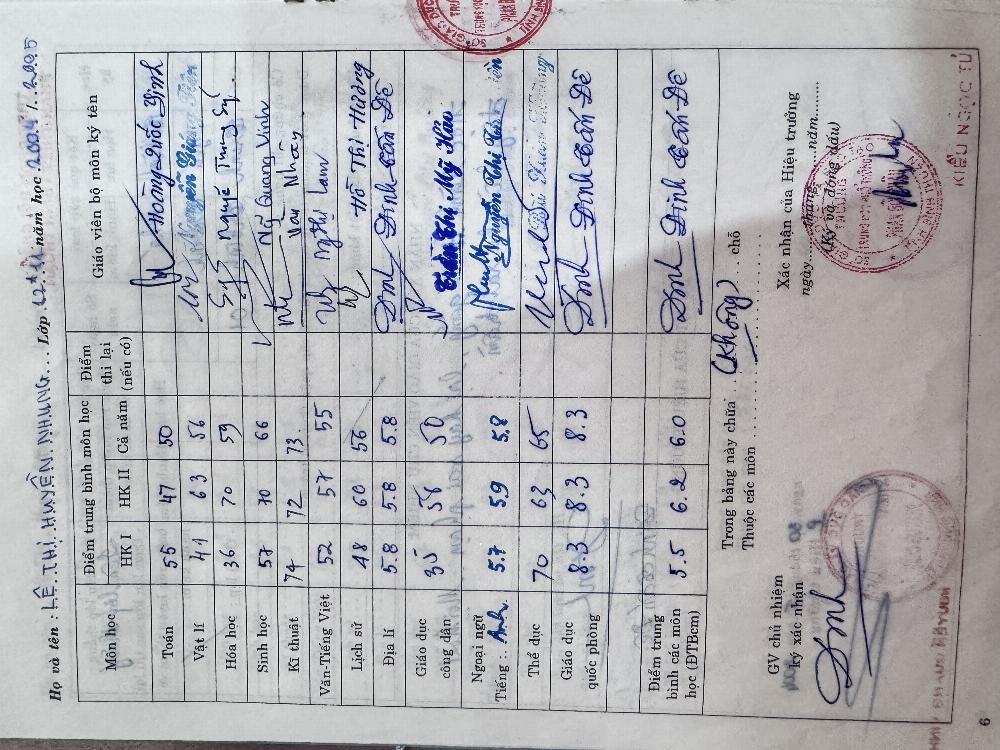 Họ và tên : LÊ. THỊ. HUYỀN. NHUNG... Lớp .12.. năm học .2004 / .2005
Môn học Điểm trung bình môn học Điểm thi lại (nếu có) Giáo viên bộ môn ký tên
HK I HK II Cả năm
Toán 55 47 50 Hoàng Quốc Định
Vật lí 41 63 56 Nguyễn
Hóa học 36 70 59
Sinh học 57 70 66 Quang Vinh
Kĩ thuật 74 72 73
Văn-Tiếng Việt 52 57 55
Lịch sử 48 60 56 Hồ Thị Hường
Địa lí 5.8 5.8 5.8 Đinh
Giáo dục công dân 35 58 50 Trần Thị Mỹ Hảo
Ngoại ngữ Tiếng : Anh. 5.7 5.9 5.8 Nguyễn Thị
Thể dục 70 63 65
Giáo dục quốc phòng 8.3 8.3 8.3 Đinh
Điểm trung bình các môn học (ĐTBcm) 5.5 6.2 6.0 Đinh
Trong bảng này chữa .. (Không) ... chỗ
Thuộc các môn
GV chủ nhiệm
ký xác nhận
Xác nhận của Hiệu trưởng
ngày......tháng......năm.........
(Ký và đóng dấu)
KIỀU NGỌC TỬ
6